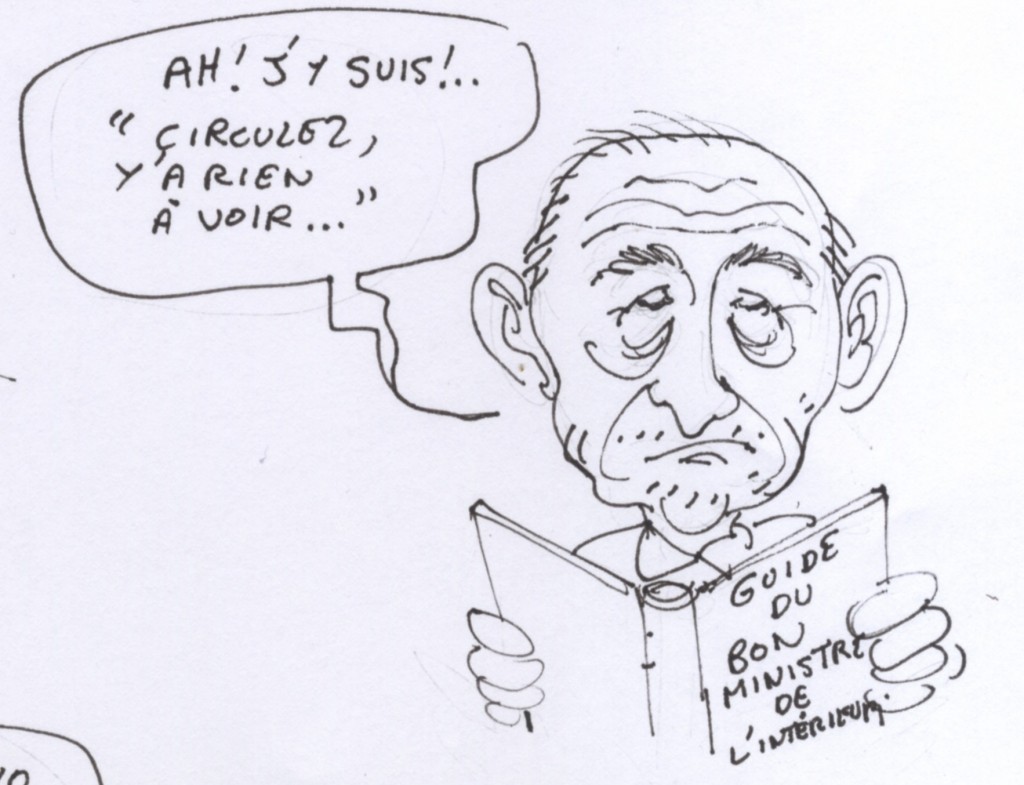 AH! J'Y SUIS!..
“ ÇIRCULEZ,
Y'A RIEN
À VOIR... ”
GUIDE
DU
BON
MINISTRE
DE
L'INTÉRIEUR.